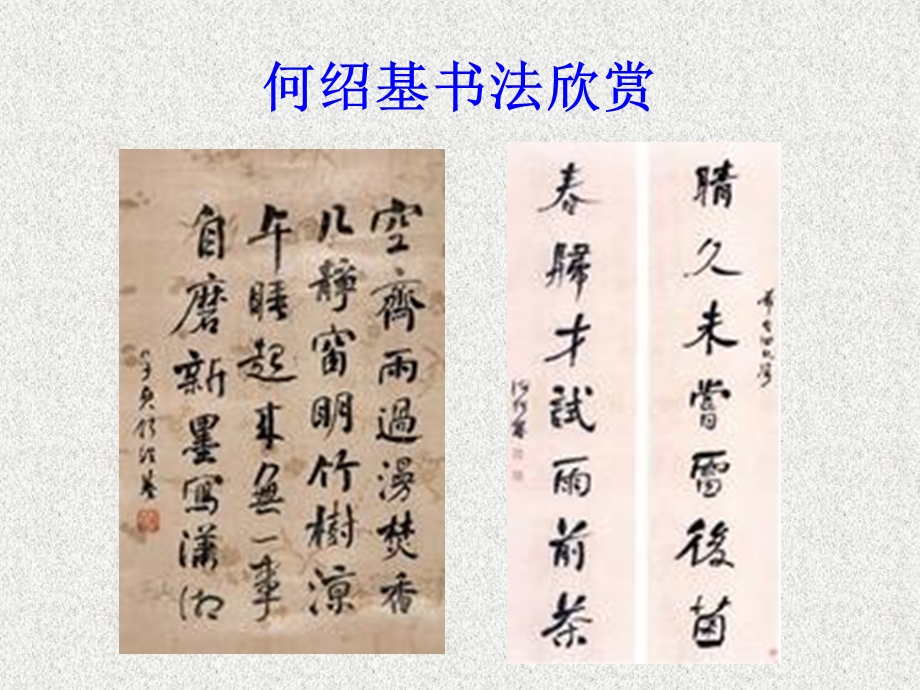 何绍基书法欣赏
空齋雨過漫焚香
几靜窗明竹樹涼
午睡起來無一事
自磨新墨寫瀟湘
子貞何紹基
晴久未嘗雷後菌
春歸才試雨前茶
何紹基